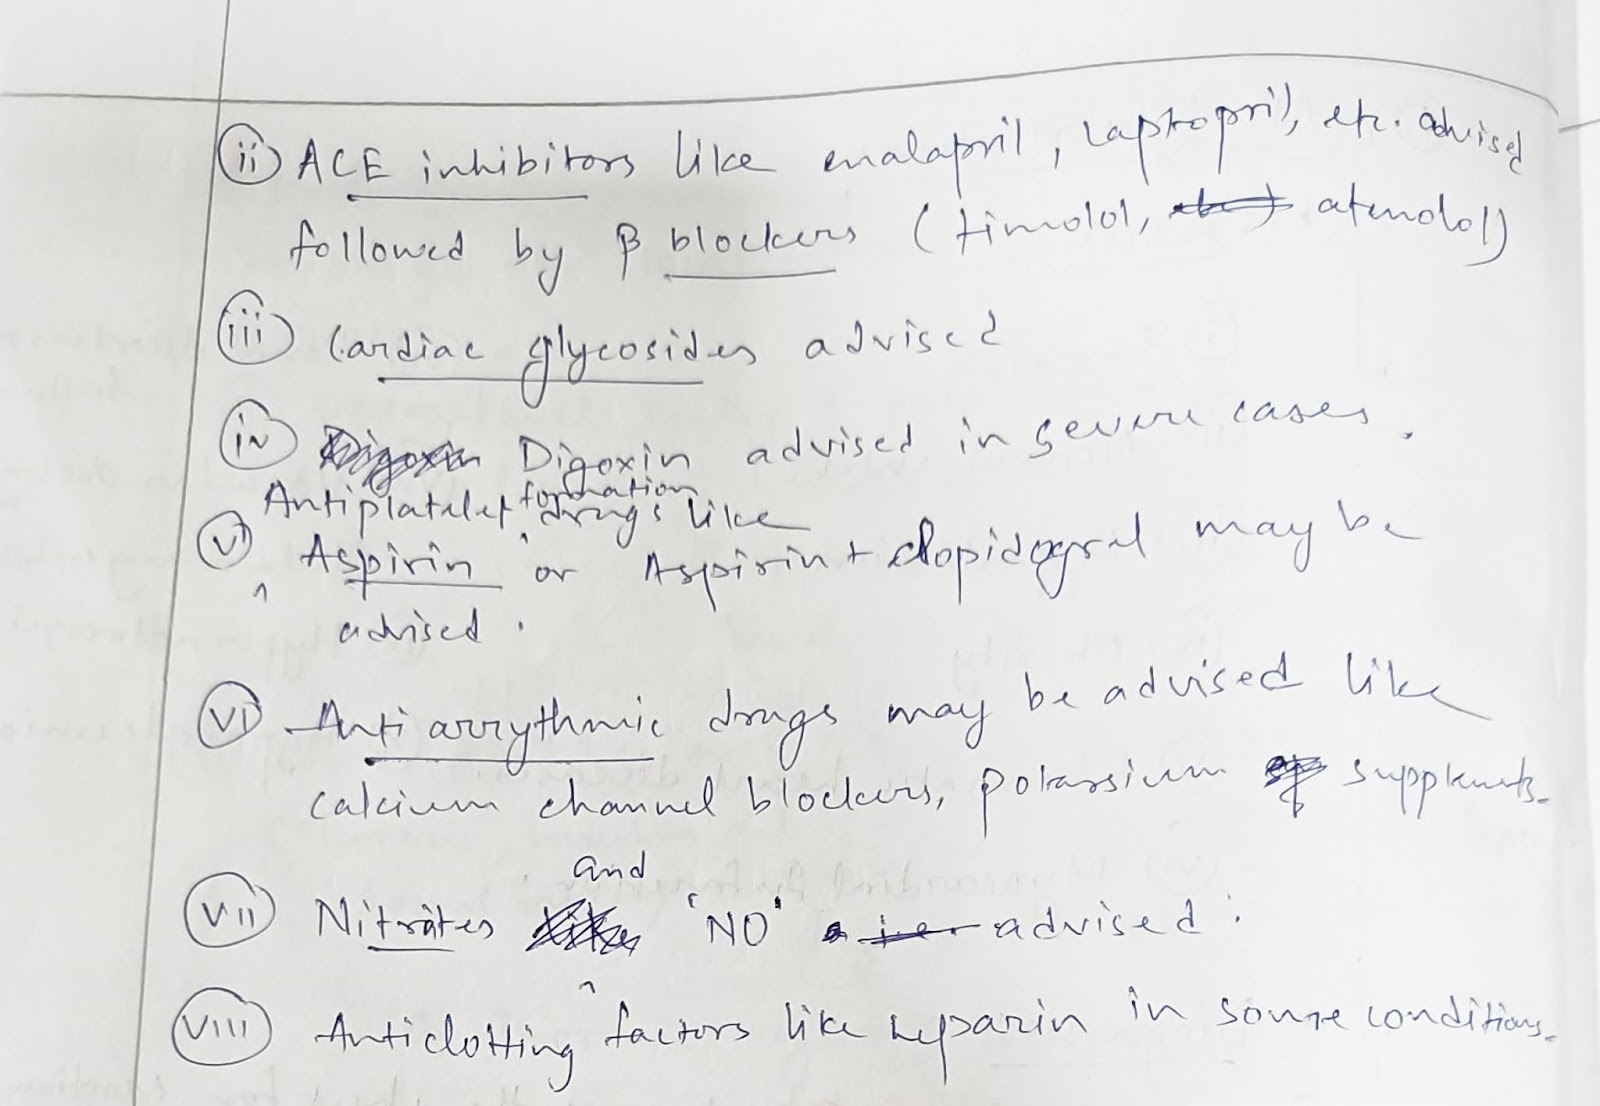 (ii) ACE inhibitors like enalapril, captopril, etc. advised
followed by β blockers (timolol, atenolol)
(iii) Cardiac glycosides advised
(iv) Digoxin advised in severe cases.
Antiplatelet formation drugs like
(v) Aspirin or Aspirin + clopidogrel may be
advised.
(vi) Anti arrythmic drugs may be advised like
calcium channel blockers, potassium supplements.
and
(vii) Nitrates 'NO' advised.
(viii) Anticlotting factors like heparin in some conditions.